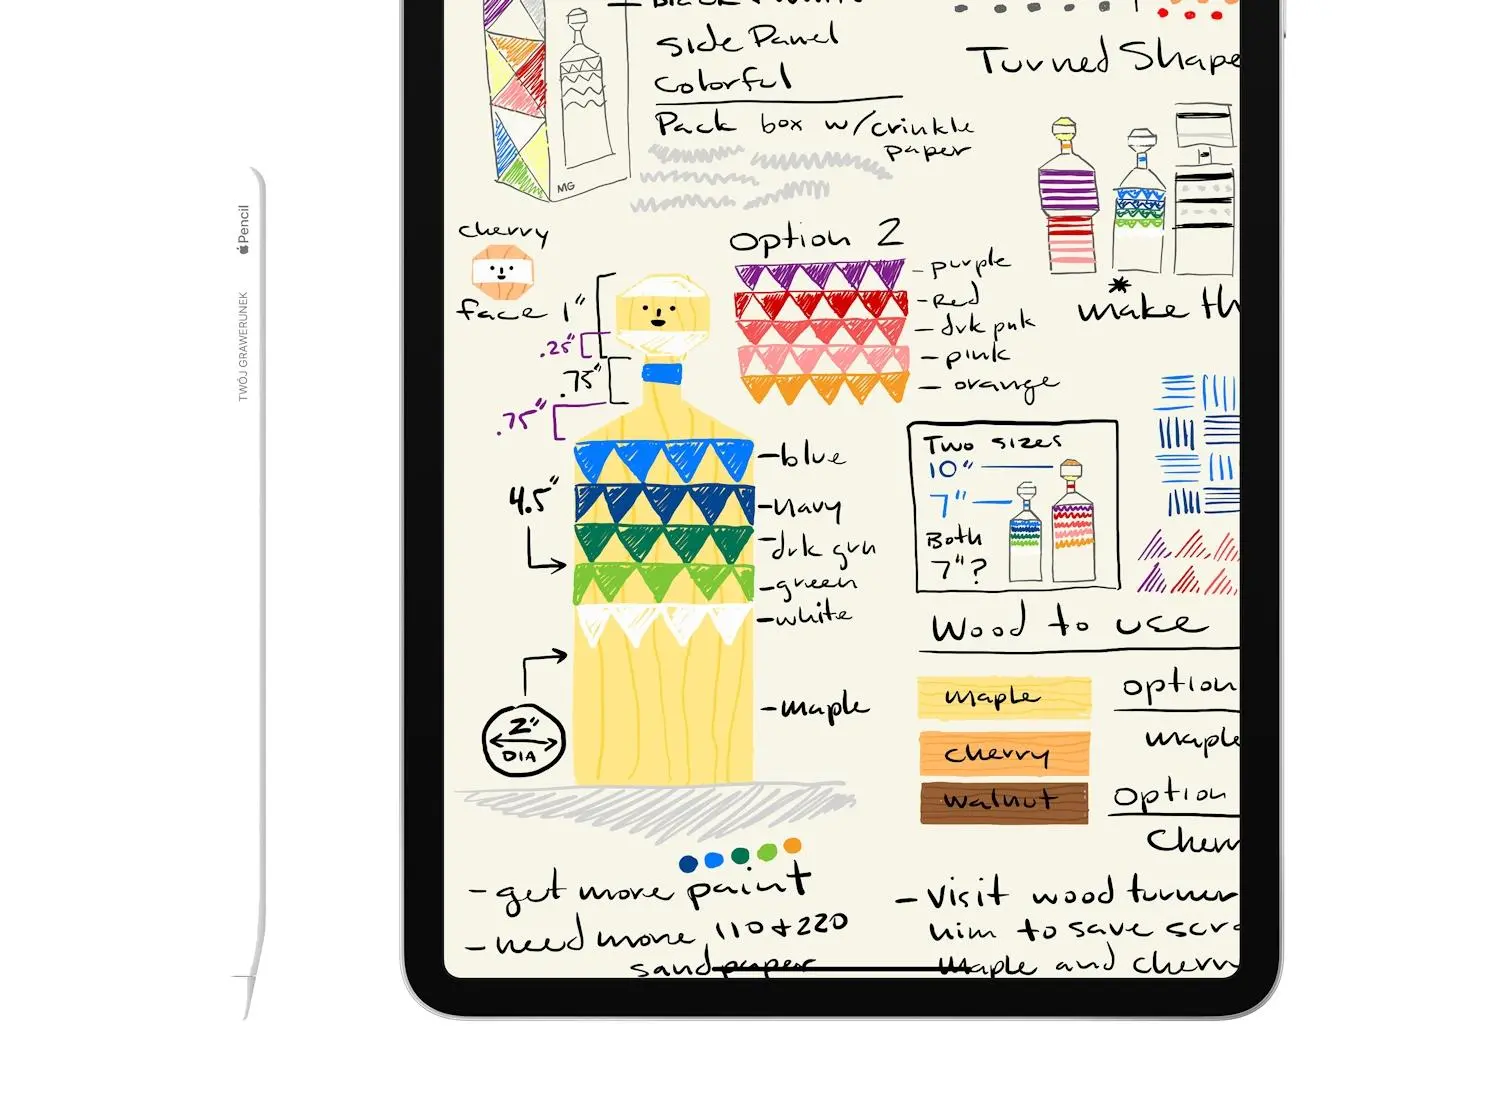 Side Panel
Colorful
Pack box w/crinkle
paper
MG
Turned Shape
cherry
face
1"
.25"
.75"
.75"
4.5"
2"
DIA
Option 2
- purple
- Red
- drk pnk
- pink
- orange
* make th
- blue
- Navy
- drk grn
- green
- white
- maple
Two sizes
10"
7"
Both
7"?
Wood to use
maple
cherry
walnut
option
maple
option
Cherr
- get more paint
- need more 110 + 220
sandpaper
- Visit wood turner
him to save scra
Maple and cherr
Pencil
TWÓJ GRAWERUNEK